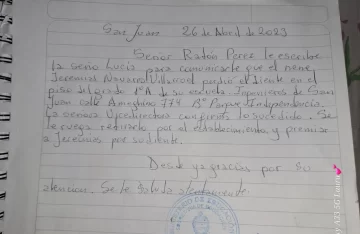 San Juan 26 de Abril de 2023
Señor Ratón Perez le escribe
la seño Lucía para comunicarle que el nene
Jeremias Navarro Villarroel perdió el diente en el
piso del grado 1° A de su escuela Ingenieros de San
Juan calle Ameghino 774 B° Parque Independencia.
La señora Vicedirectora confirmó lo sucedido. Se
le ruega retirarlo por el establecimiento y premiar
a Jeremias por su diente.
Desde ya gracias por su
atención. Se lo saluda atentamente